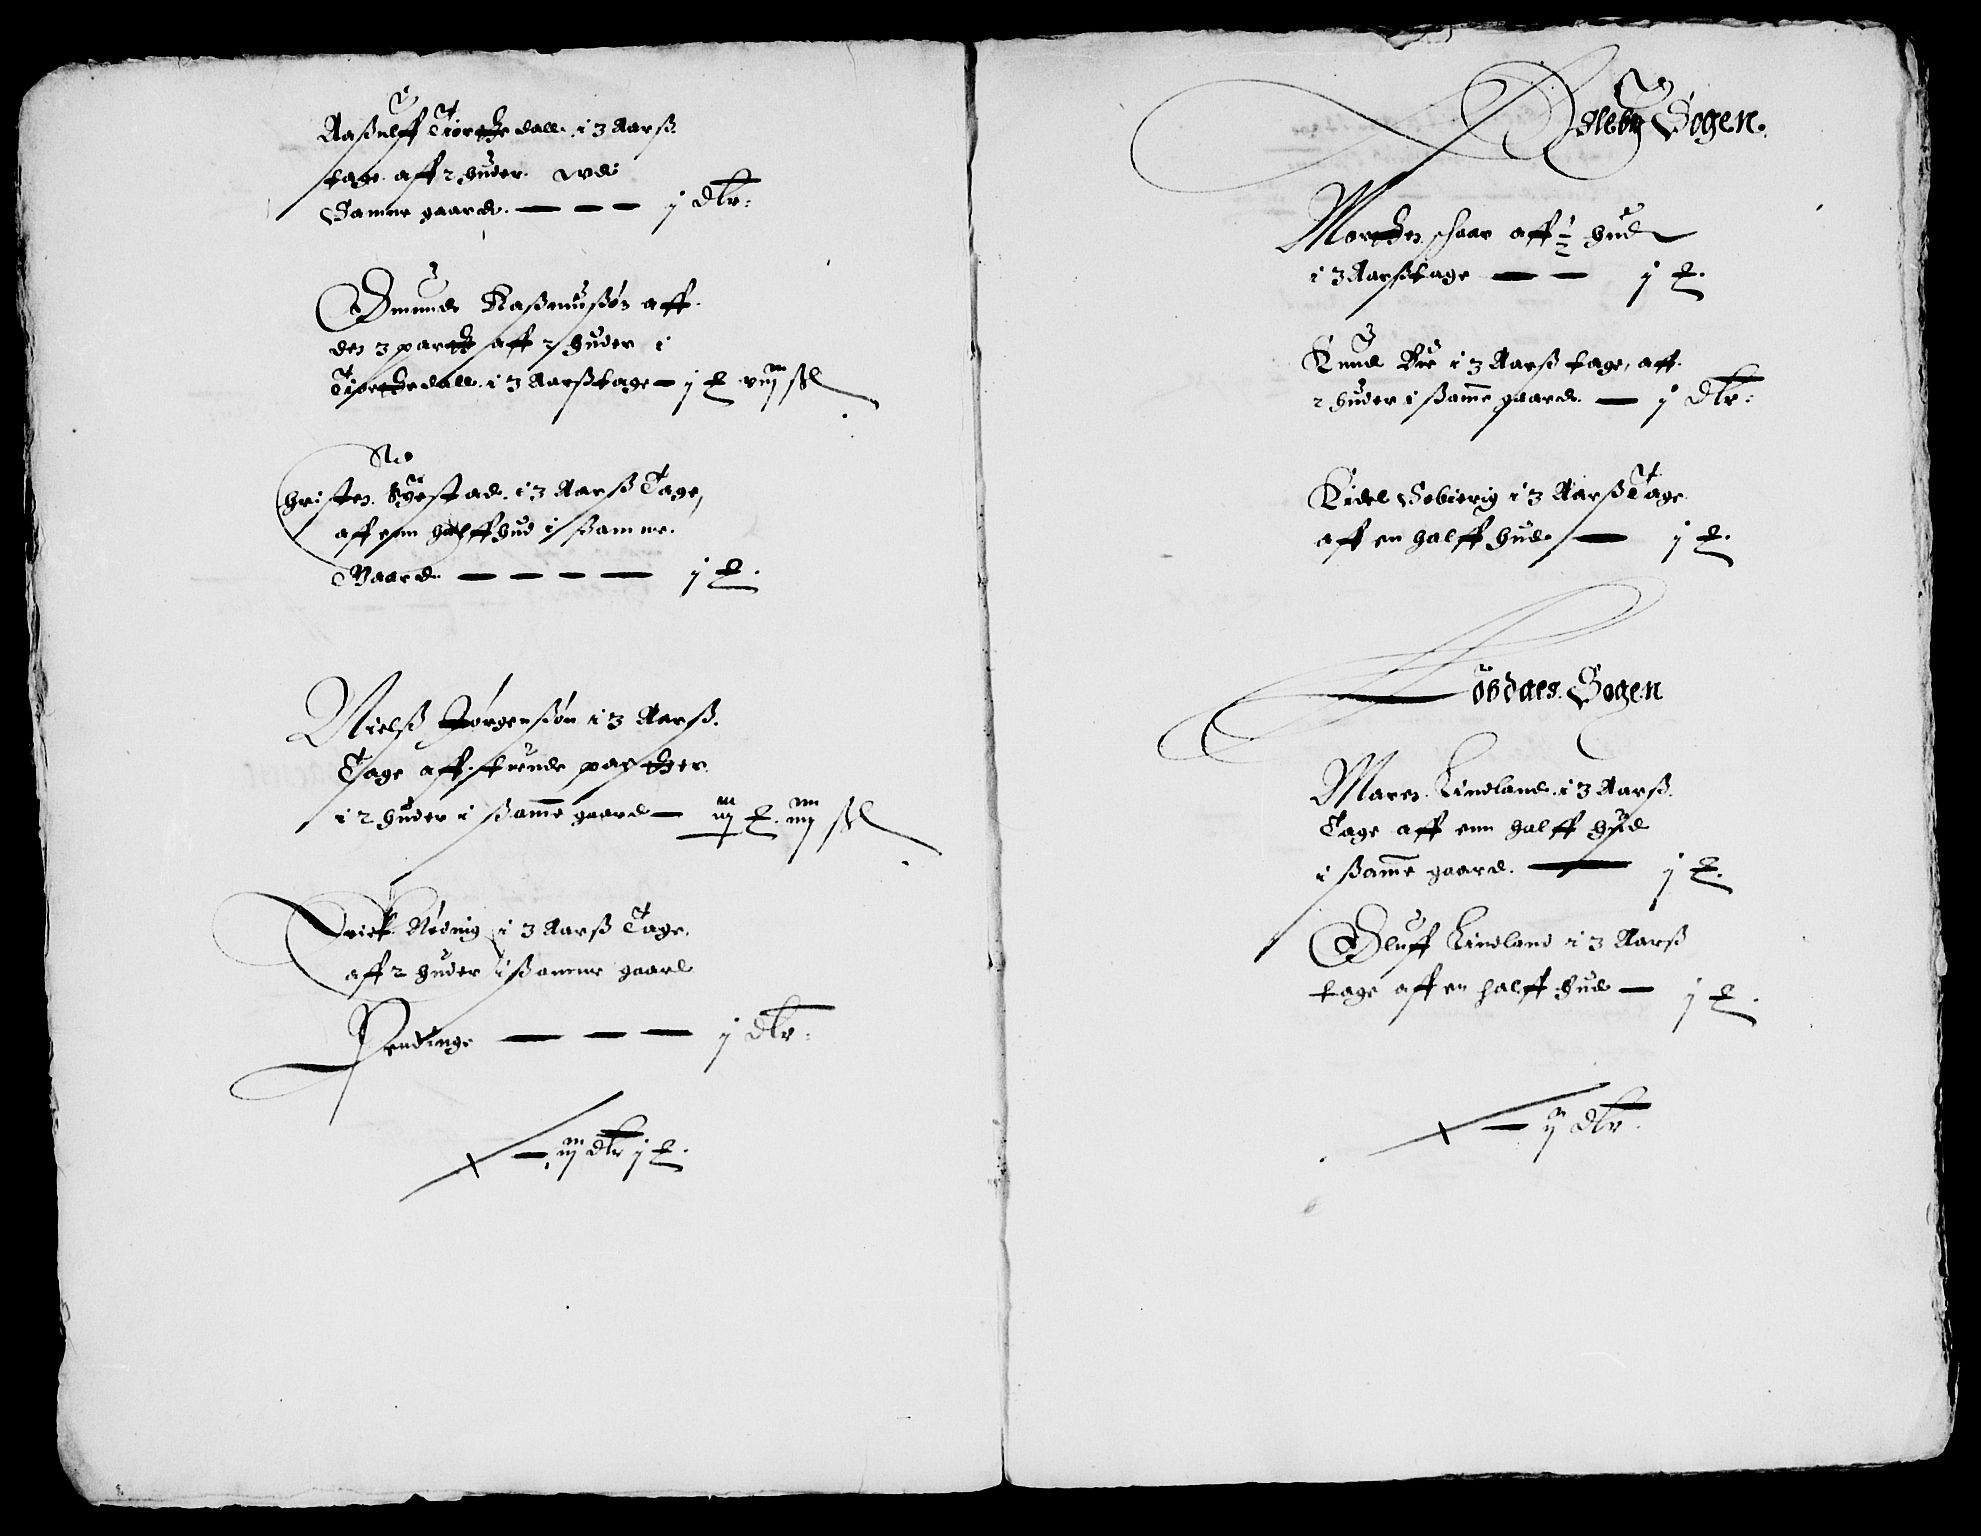 Aaßulff Tiorckedall i 3 Aarß
tage aff 2 huder udi
Samme gaard — — — j dlr:
Omund Raßmußøn aff
den 3 parck aff 2 huder i
Tiorckedall i 3 Aarß tage — j ₤ viij ßl
Christen Systad i 3 Aarß Tage,
aff enn halff hud i ßamme
Gaard — — — — j ₤.
Nielß Jørgensøn i 3 Aarß
Tage aff tuende parcker
i 2 huder i ßame gaard — iij ₤. iiij ßl
Erick Rødnig i 3 Aarß Tage
aff 2 huder i ßamme gaard
Rendinge — — — j dlr:
— iij dlr j ₤.
Sogen.
Morten schaar aff ½ hud
i 3 Aarß tage — — j ₤.
Knud Bue i 3 Aarß tage, aff
2 huder i ßame gaard — j dlr:
Kidel Sobierig i 3 Aarß Tage
aff en halff hud — j ₤.
Löbdaels Sogen
Maren Lindland i 3 Aarß
Tage aff enn halff hud
i ßame gaard. — j ₤.
Oluff Lindland i 3 Aarß
tage aff en halff hud — j ₤.
— ij dlr.